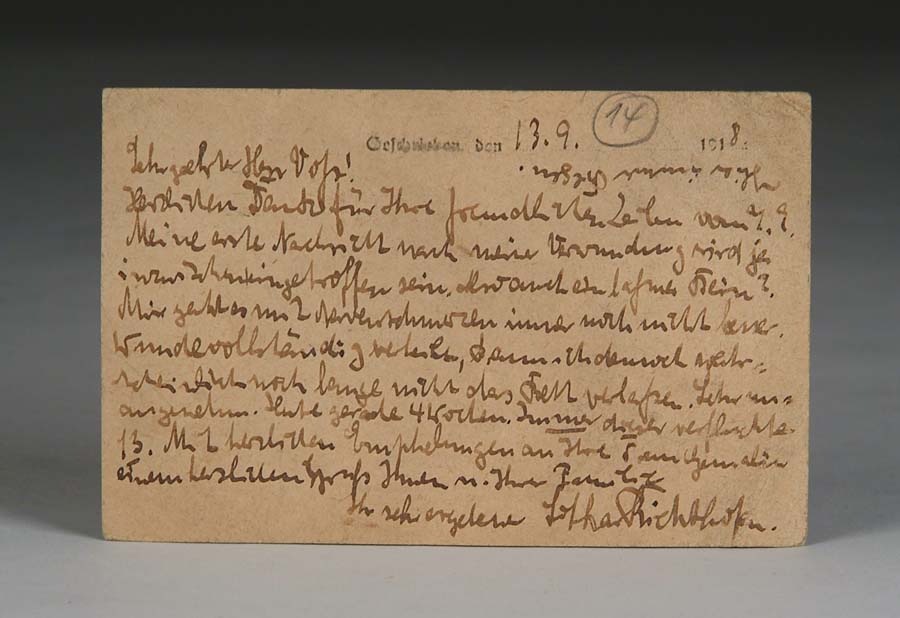 Geschrieben, den 13.9. 1918.
14
Sehr geehrter Herr Voß!
Herzlichen Dank für Ihre freundlichen Zeilen vom 7. 9.
Meine erste Nachricht nach meiner Verwundung wird ja
inzwischen eingetroffen sein. Also auch ein lahmes Bein?
Mir geht es mit Nervenschmerzen immer noch nicht besser.
Wunde vollständig verheilt, kann ich dennoch wahr-
scheinlich noch lange nicht das Bett verlassen. Sehr un-
angenehm. Heute gerade 4 Wochen. Immer dieser verfluchte
13. Mit herzlichen Empfehlungen an Ihre Frau Gemahlin
einem herzlichen Gruß Ihnen u. Ihrer Familie
Ihr sehr ergebener Lothar Richthofen.